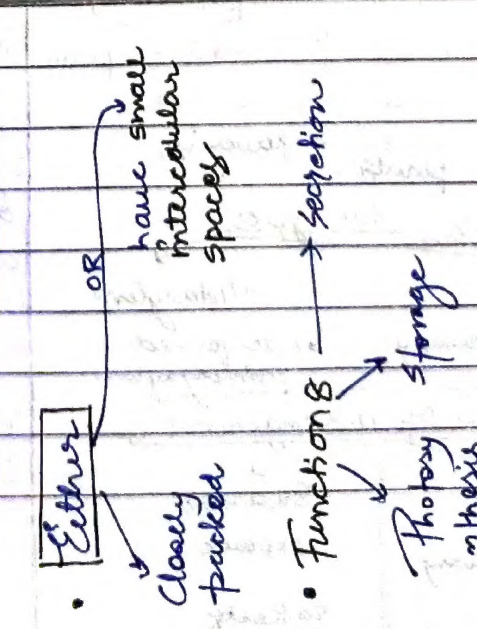 • Either
OR
Closely
packed
have small
intercellular
spaces
• Functions
Secretion
Storage
Photosy
nthesis